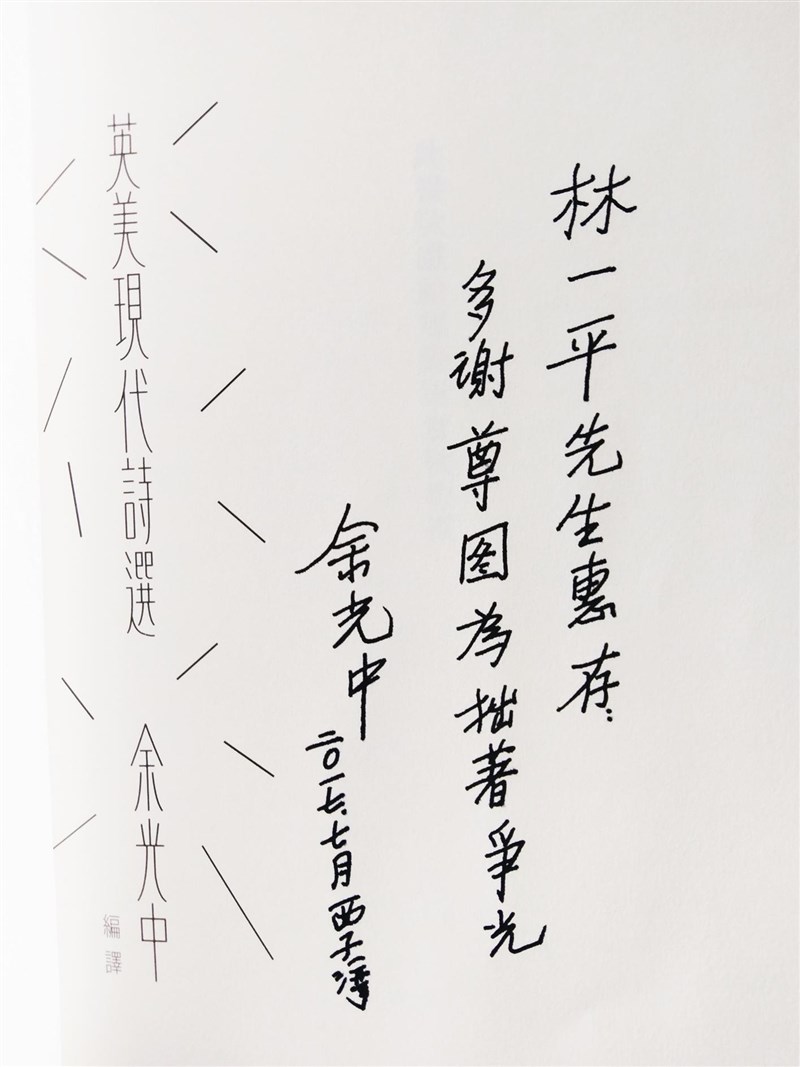 林一平先生惠存:
多谢尊图為拙著爭光
余光中
二〇一七、七月 西子灣
英美現代詩選
余光中
編譯